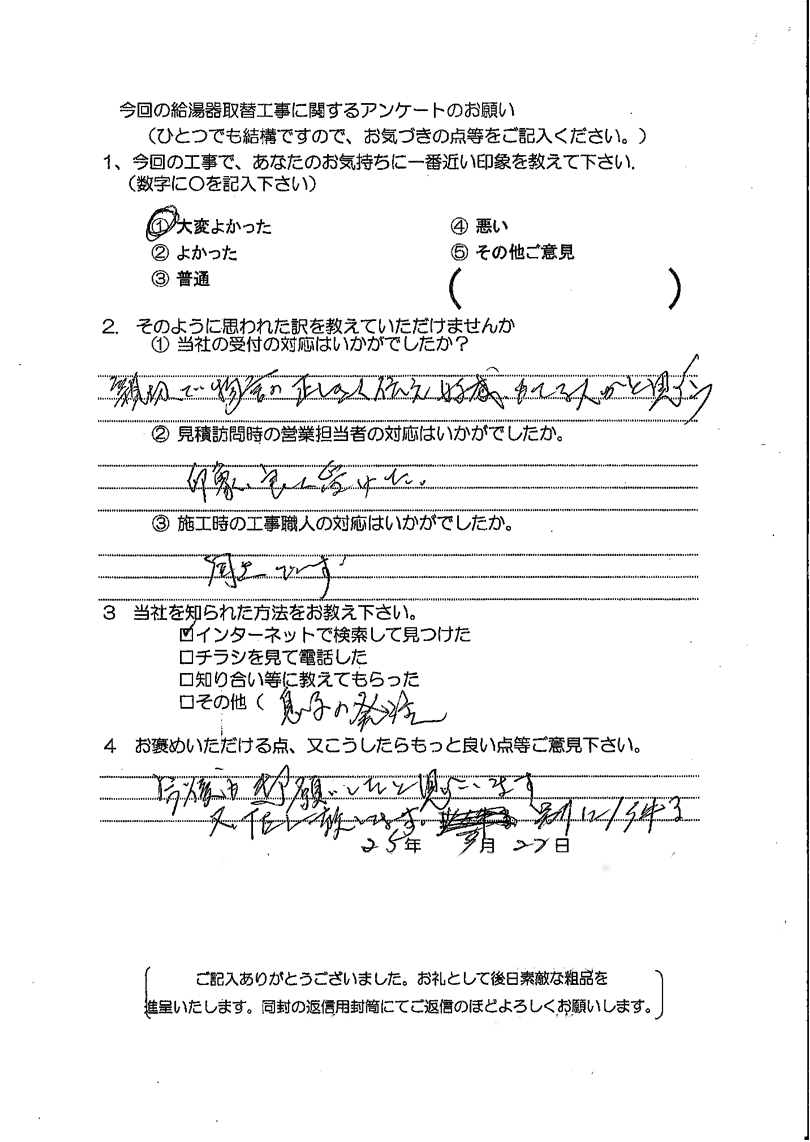 今回の給湯器取替工事に関するアンケートのお願い
（ひとつでも結構ですので、お気づきの点等をご記入ください。）
1、今回の工事で、あなたのお気持ちに一番近い印象を教えて下さい.
（数字に〇を記入下さい）
① 大変よかった
② よかった
③ 普通
④ 悪い
⑤ その他ご意見
（　）
2. そのように思われた訳を教えていただけませんか
① 当社の受付の対応はいかがでしたか？
親切で
② 見積訪問時の営業担当者の対応はいかがでしたか。
印象 受けた。
③ 施工時の工事職人の対応はいかがでしたか。
同上です
3 当社を知られた方法をお教え下さい。
☑インターネットで検索して見つけた
□チラシを見て電話した
□知り合い等に教えてもらった
□その他（ 息子の
4 お褒めいただける点、又こうしたらもっと良い点等ご意見下さい。
今後も 願いしたいと思っています
又
25年 月 27日
ご記入ありがとうございました。お礼として後日素敵な粗品を
進呈いたします。同封の返信用封筒にてご返信のほどよろしくお願いします。